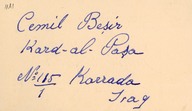 Cemil Beşir
Kard-al-Paşa
No: 115/1 Karrada
Iraq